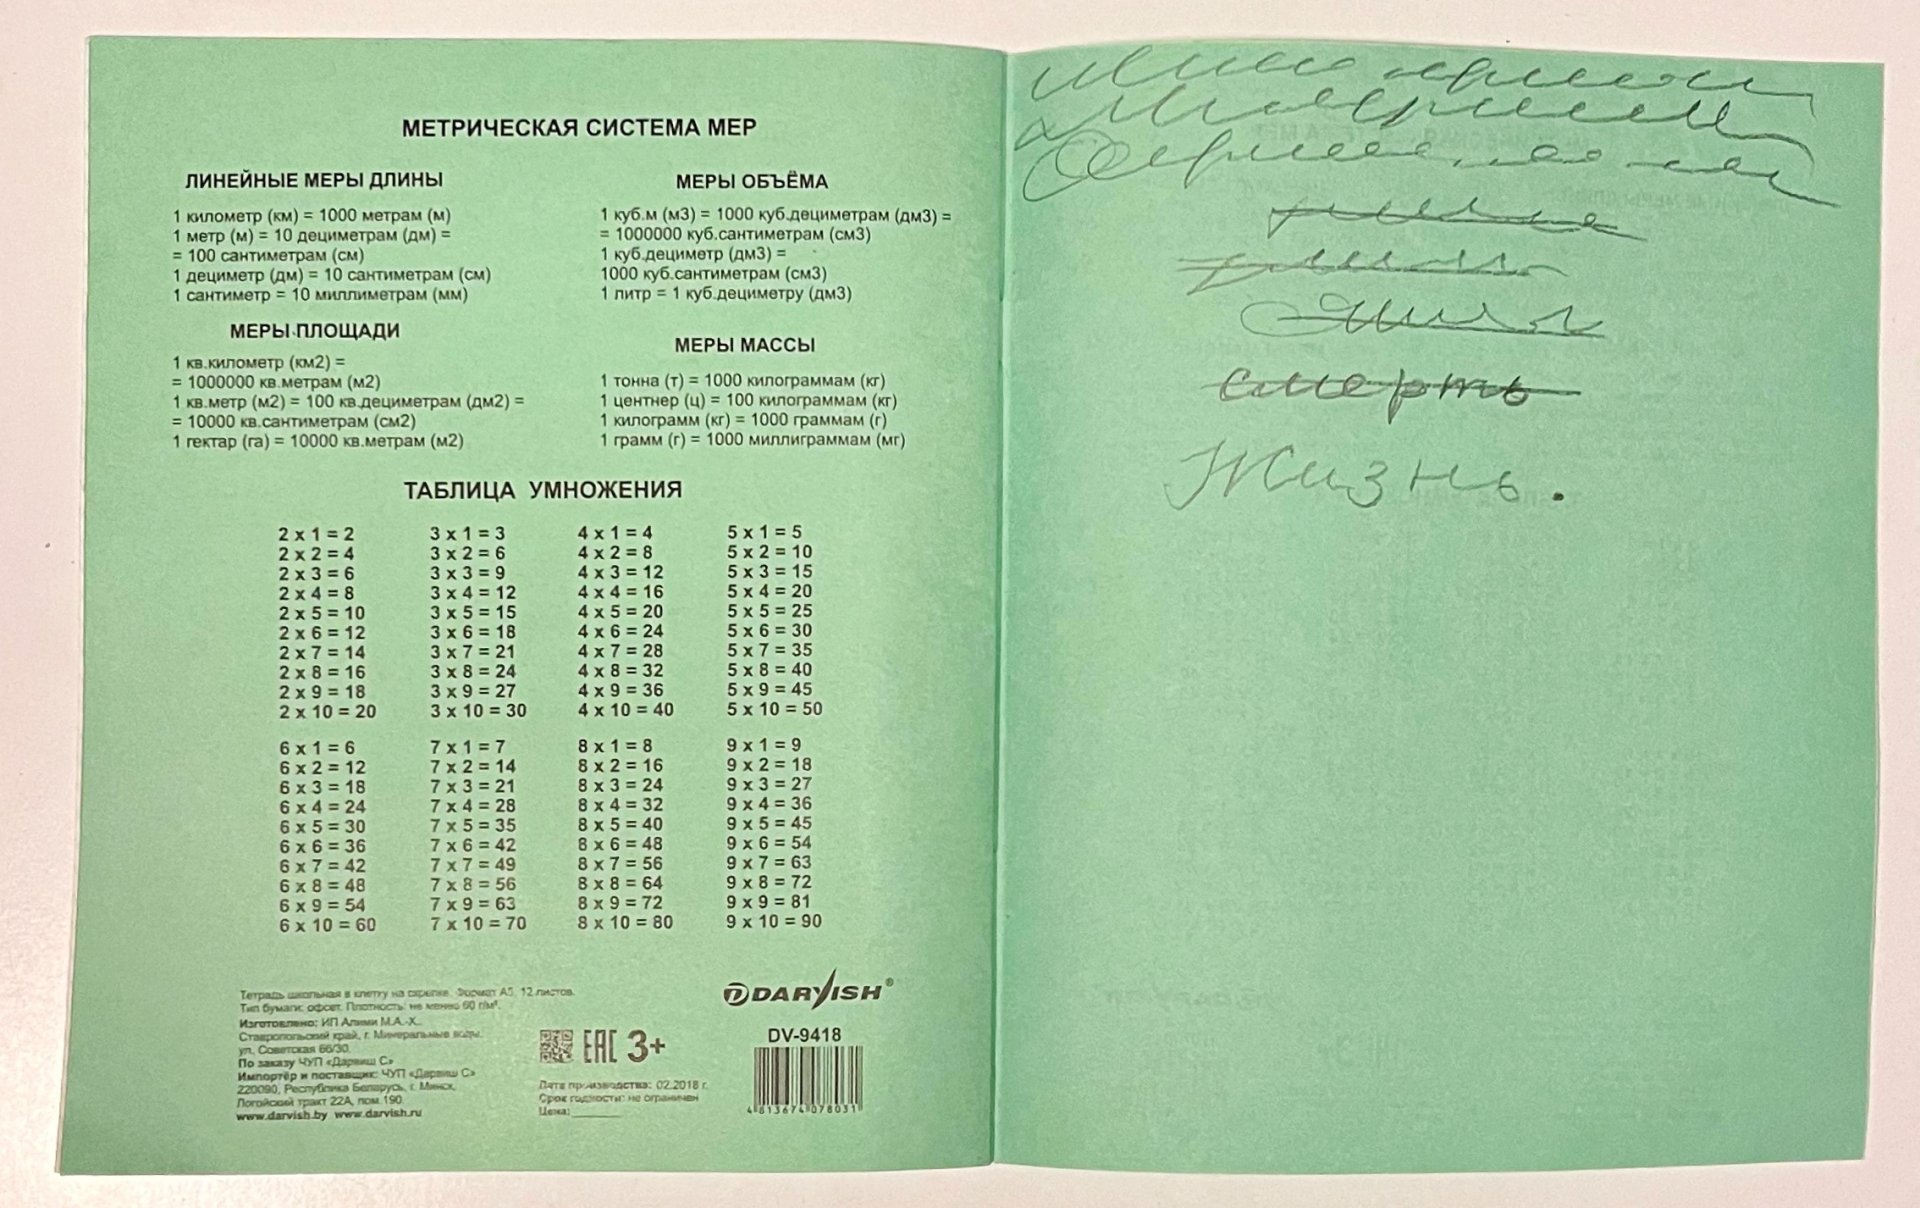 МЕТРИЧЕСКАЯ СИСТЕМА МЕР
ЛИНЕЙНЫЕ МЕРЫ ДЛИНЫ
1 километр (км) = 1000 метрам (м)
1 метр (м) = 10 дециметрам (дм) =
= 100 сантиметрам (см)
1 дециметр (дм) = 10 сантиметрам (см)
1 сантиметр = 10 миллиметрам (мм)
МЕРЫ ПЛОЩАДИ
1 кв.километр (км2) =
= 1000000 кв.метрам (м2)
1 кв.метр (м2) = 100 кв.дециметрам (дм2) =
= 10000 кв.сантиметрам (см2)
1 гектар (га) = 10000 кв.метрам (м2)
МЕРЫ ОБЪЁМА
1 куб.м (м3) = 1000 куб.дециметрам (дм3) =
= 1000000 куб.сантиметрам (см3)
1 куб.дециметр (дм3) =
1000 куб.сантиметрам (см3)
1 литр = 1 куб.дециметру (дм3)
МЕРЫ МАССЫ
1 тонна (т) = 1000 килограммам (кг)
1 центнер (ц) = 100 килограммам (кг)
1 килограмм (кг) = 1000 граммам (г)
1 грамм (г) = 1000 миллиграммам (мг)
ТАБЛИЦА УМНОЖЕНИЯ
2 x 1 = 2 3 x 1 = 3 4 x 1 = 4 5 x 1 = 5
2 x 2 = 4 3 x 2 = 6 4 x 2 = 8 5 x 2 = 10
2 x 3 = 6 3 x 3 = 9 4 x 3 = 12 5 x 3 = 15
2 x 4 = 8 3 x 4 = 12 4 x 4 = 16 5 x 4 = 20
2 x 5 = 10 3 x 5 = 15 4 x 5 = 20 5 x 5 = 25
2 x 6 = 12 3 x 6 = 18 4 x 6 = 24 5 x 6 = 30
2 x 7 = 14 3 x 7 = 21 4 x 7 = 28 5 x 7 = 35
2 x 8 = 16 3 x 8 = 24 4 x 8 = 32 5 x 8 = 40
2 x 9 = 18 3 x 9 = 27 4 x 9 = 36 5 x 9 = 45
2 x 10 = 20 3 x 10 = 30 4 x 10 = 40 5 x 10 = 50
6 x 1 = 6 7 x 1 = 7 8 x 1 = 8 9 x 1 = 9
6 x 2 = 12 7 x 2 = 14 8 x 2 = 16 9 x 2 = 18
6 x 3 = 18 7 x 3 = 21 8 x 3 = 24 9 x 3 = 27
6 x 4 = 24 7 x 4 = 28 8 x 4 = 32 9 x 4 = 36
6 x 5 = 30 7 x 5 = 35 8 x 5 = 40 9 x 5 = 45
6 x 6 = 36 7 x 6 = 42 8 x 6 = 48 9 x 6 = 54
6 x 7 = 42 7 x 7 = 49 8 x 7 = 56 9 x 7 = 63
6 x 8 = 48 7 x 8 = 56 8 x 8 = 64 9 x 8 = 72
6 x 9 = 54 7 x 9 = 63 8 x 9 = 72 9 x 9 = 81
6 x 10 = 60 7 x 10 = 70 8 x 10 = 80 9 x 10 = 90
Тетрадь школьная в клетку на скрепке. Формат А5, 12 листов.
Тип бумаги: офсет. Плотность: не менее 60 г/м².
Изготовлено: ИП Алими М.А.-Х.,
Ставропольский край, г. Минеральные воды,
ул. Советская 66/30.
По заказу ЧУП «Дарвиш С»
Импортёр и поставщик: ЧУП «Дарвиш С»
220090, Республика Беларусь, г. Минск,
Логойский тракт 22А, пом.190.
www.darvish.by www.darvish.ru
EAC 3+
Дата производства: 02.2018 г.
Срок годности: не ограничен
Цена:
DARVISH®
DV-9418
4 813674 078031
смерть
Жизнь.